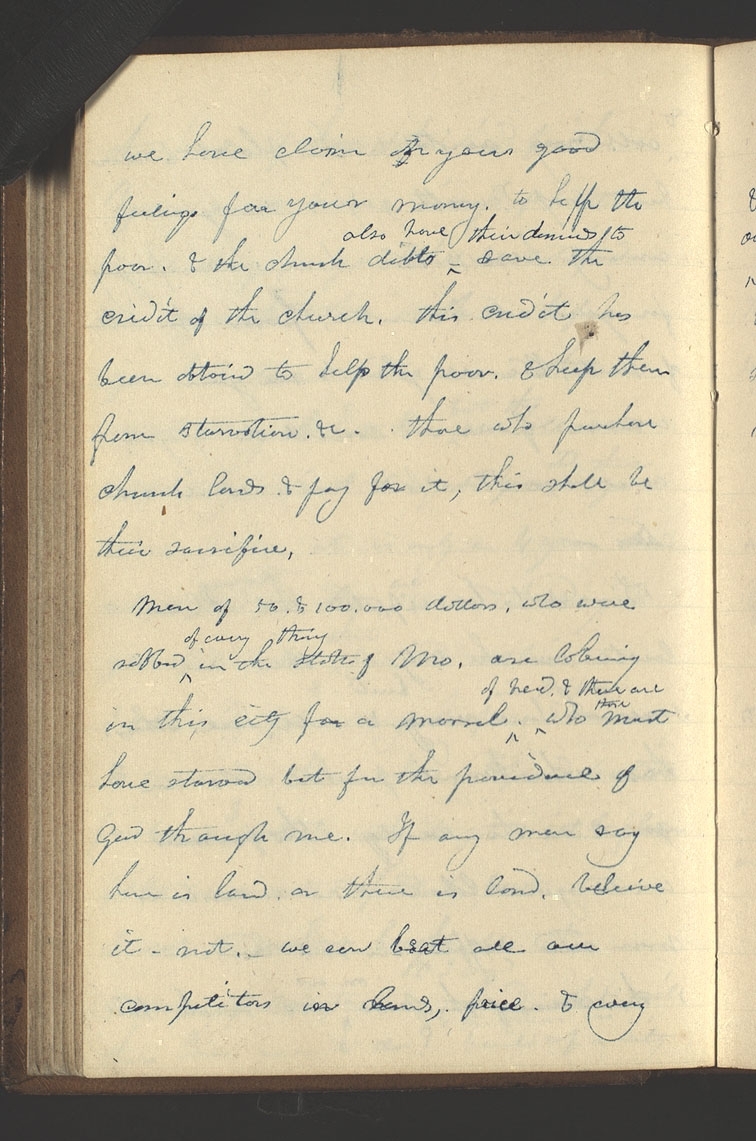 we have claim on your good
feelings for your money. to help the
also have their demands to
poor. & the church debts - save the
credit of the church. this credit has
been obtaind to help the poor. & keep them
from starvation. &c. - those who purchase
church lands & pay for it, this shall be
their sacrifice,
Men of 50. & 100.000 dollars. who were
of every thing
robbed in the state of Mo. are laboring
of bread. & there are
in this city for a morsel. who must
have starvd but for the providence of
God through me. If any man say
here is land. or there is land. believe
it - not. - we can beat all our
competitors in lands, price. & every